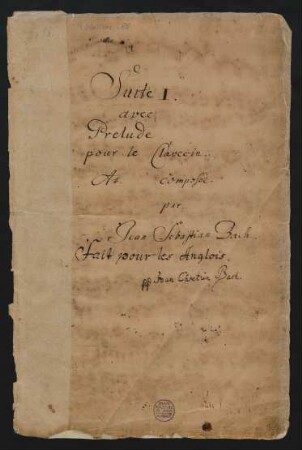 Suite I.
avec
Prelude
pour le Clavecin.
composée
par
Jean Sebastian Bach.
Fait pour les Anglois.
pp Jean Chretien Bach